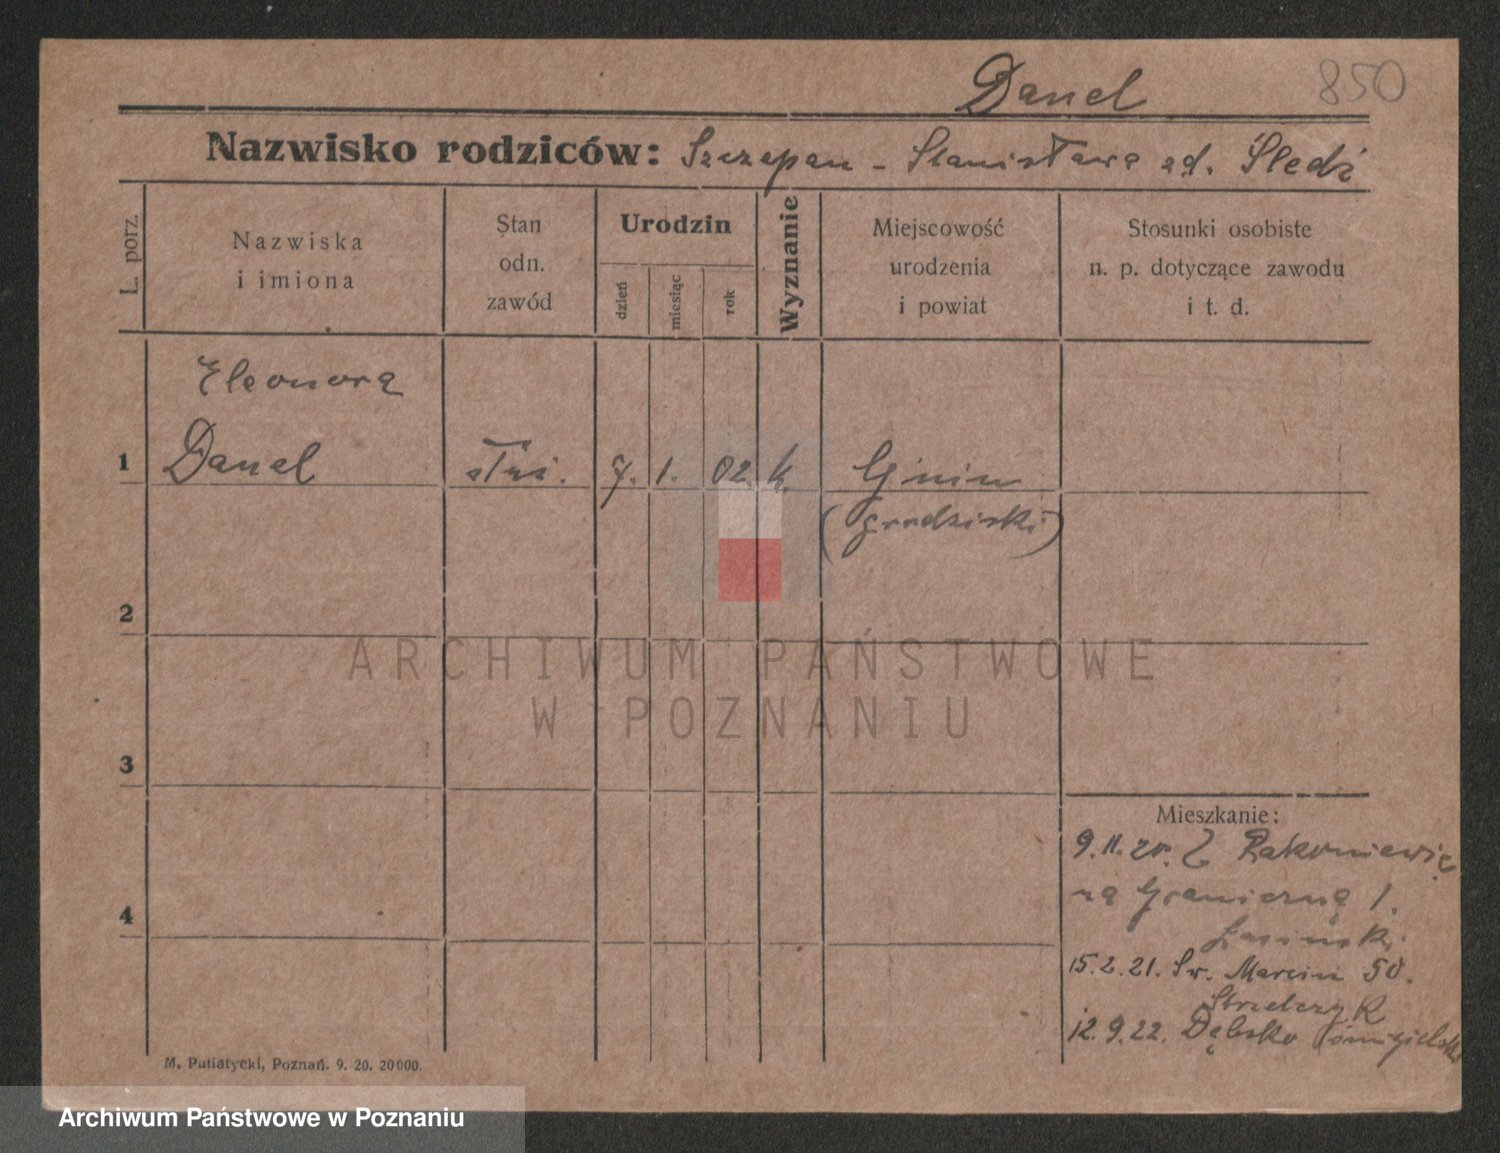 Danel 850
Nazwisko rodziców: Szczepan - Stanisława zd. Śledź
L. porz.
Nazwiska
i imiona
Stan
odn.
zawód
Urodzin
dzień
miesiąc
rok
Wyznanie
Miejscowość
urodzenia
i powiat
Stosunki osobiste
n. p. dotyczące zawodu
i t. d.
Eleonora
1 Danel służ. 7. 1. 02. k. Gnin
(grodziski)
2
3
4
Mieszkanie:
9.11.20. Z Rakoniewic
na Graniczną 1.
15.2.21. Św. Marcin 50.
Strzelczyk
12.9.22. Dębsko śmigielski
M. Putiatycki, Poznań. 9. 20. 20000.
ARCHIWUM PAŃSTWOWE
W POZNANIU
Archiwum Państwowe w Poznaniu